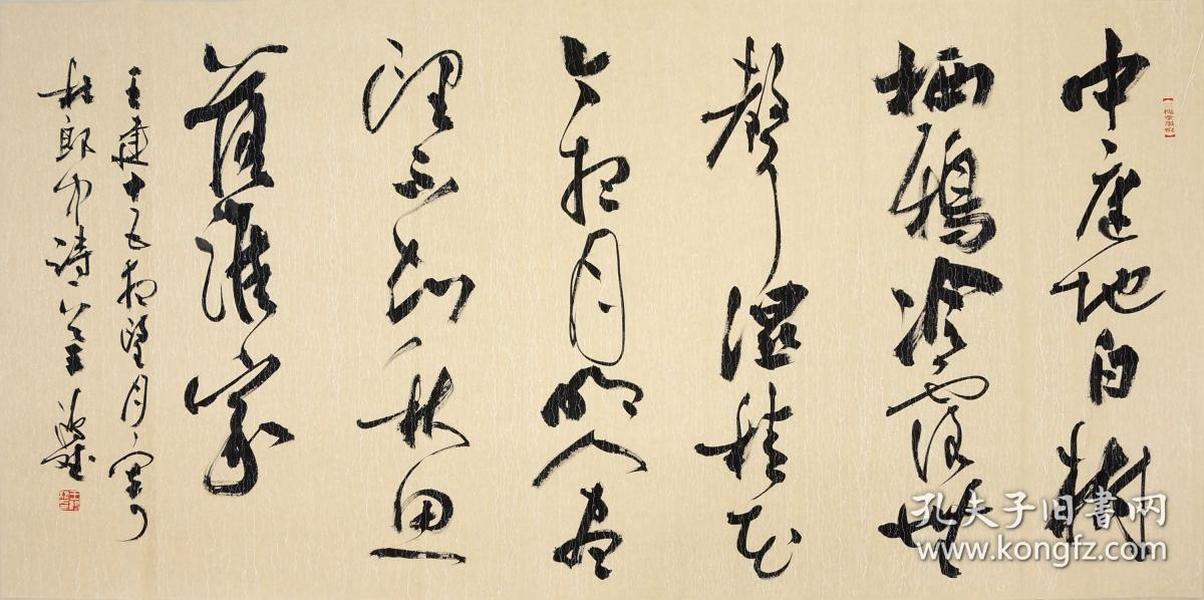 中庭地白樹
栖鴉冷露無
聲濕桂花
今夜月明人盡
望不知秋思
落誰家
王建十五夜望月寄
杜郎中詩
孔夫子旧书网
www.kongfz.com